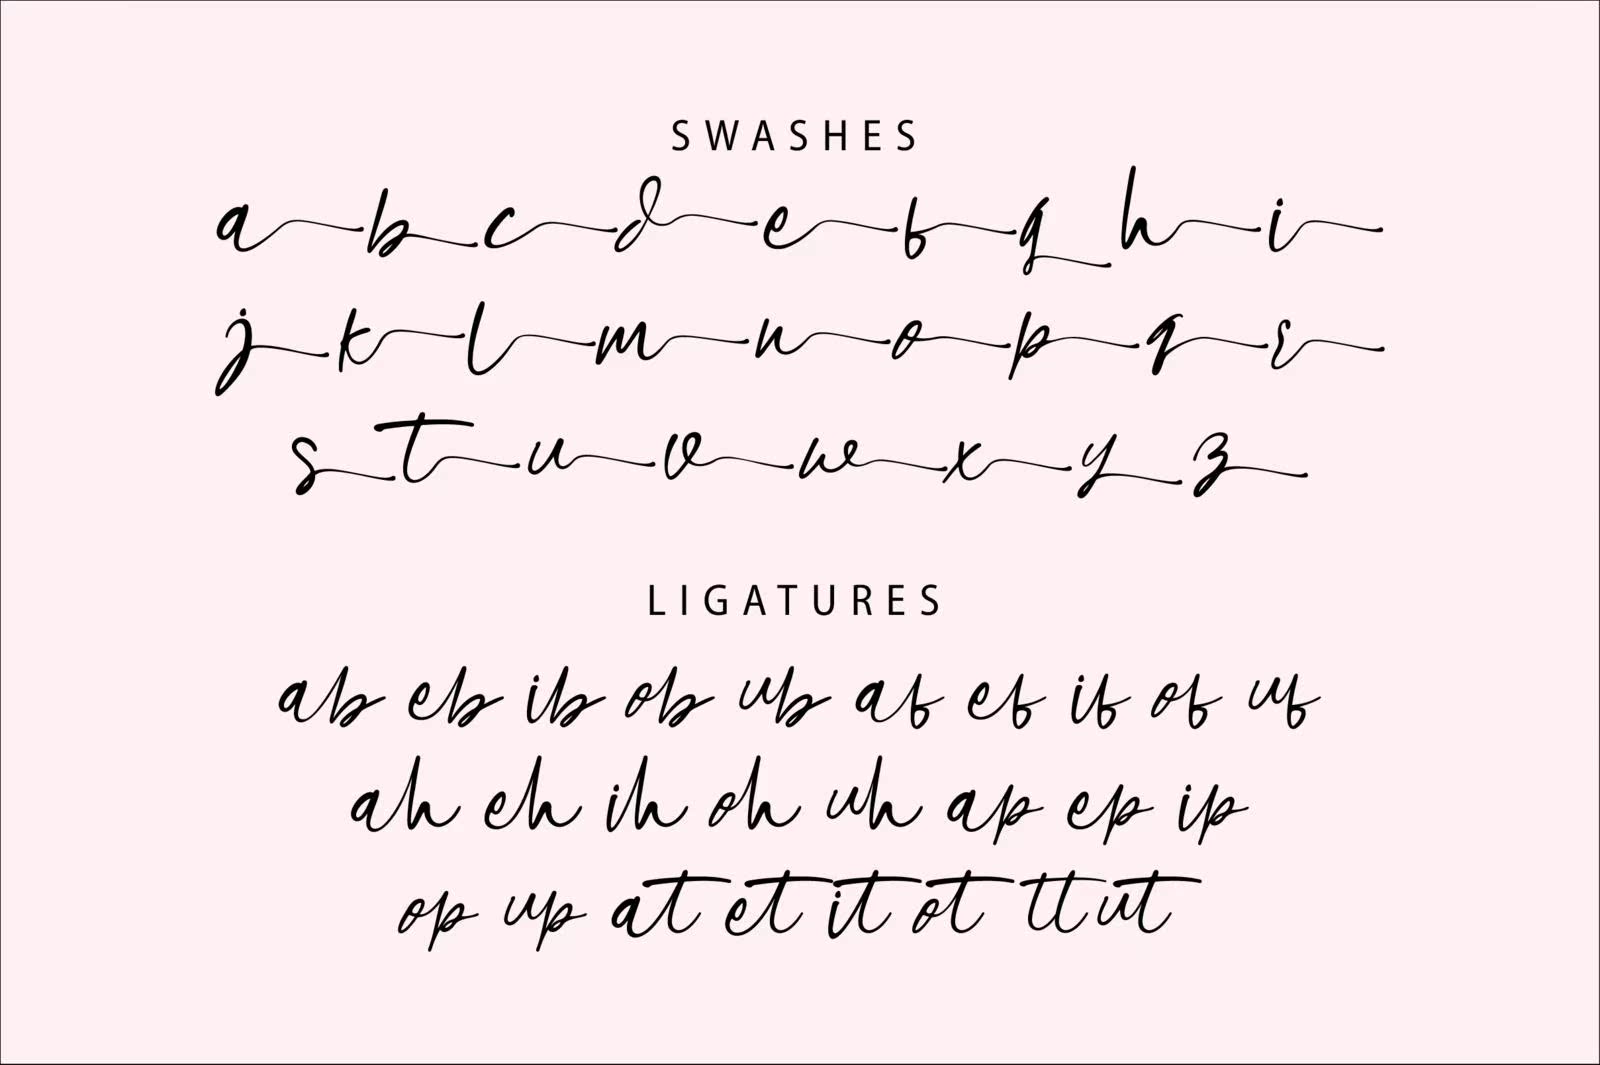 SWASHES
a b c d e f g h i
j k l m n o p q r
s t u v w x y z
LIGATURES
ab eb ib ob ub af ef if of uf
ah eh ih oh uh ap ep ip
op up at et it ot tt ut